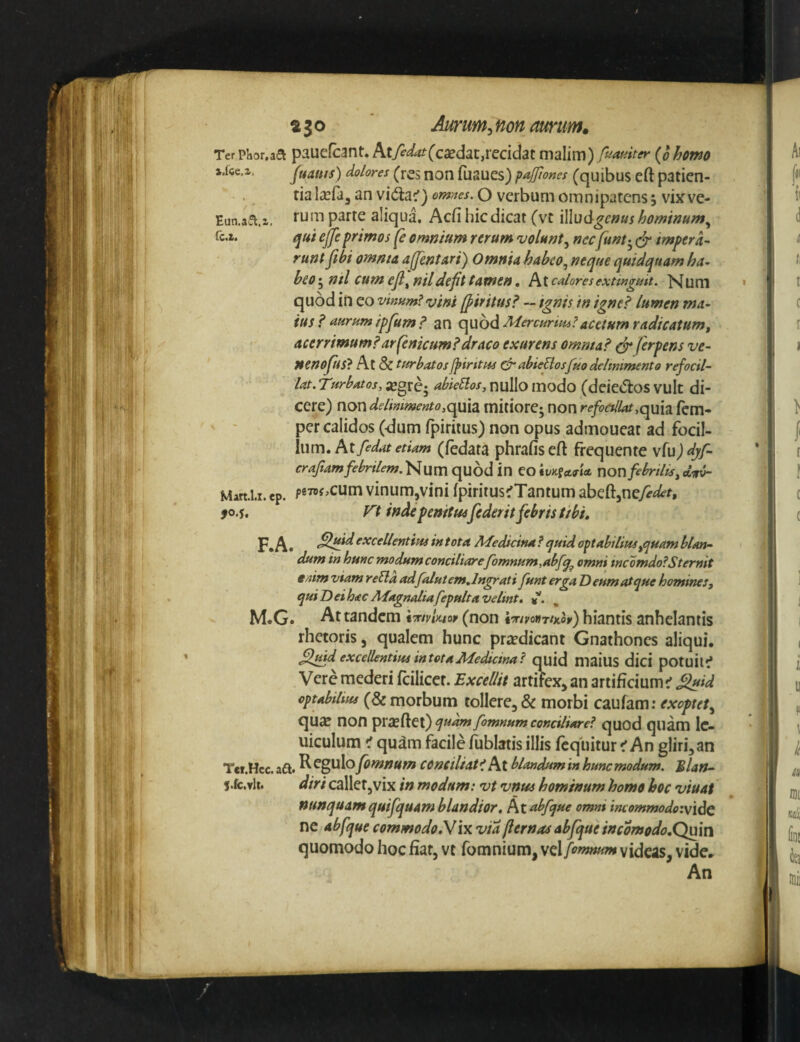 230 Aurum, non aurum.
Ter Phor. act pauescant. At sedat (cædat, recidat malim) suauiter (ô homo
2. sce. 2. suauis) dolores (res non suaues) passiones (quibus est patien-
tia læsa, an victa?) omnes. O verbum omnipatens; vix ve-
Eun. act. 2. rum parte aliquâ. Ac si hic dicat (vt illud genus hominum,
sc. 2. qui esse primos se omnium rerum volunt, nec sunt; & impera-
runt sibi omnia assentari) Omnia habeo, neque quidquam ha-
beo; nil cum est, nil defit tamen. At calores extinguit. Num
quòd in eo vinum? vini spiritus? -- ignis in igne? lumen ma-
ius? aurum ipsum? an quòd Mercurius? acetum radicatum,
acerrimum? arsenicum? draco exurens omnia? & serpens ve-
nenosus? At & turbatos spiritus & abiectos suo delinimento refocil-
lat. Turbatos, ægrè; abiectos, nullo modo (deiectos vult di-
cere) non delinimento, quia mitiore; non refocillat, quia sem-
per calidos (dum spiritus) non opus admoueat ad focil-
lum. At sedat etiam (sedatâ phrasis est frequente vsu) dys-
crasiam febrilem. Num quòd in eo non febrilis,
Mart. l. 1. ep. cum vinum, vini spiritus? Tantum abest, ne sedet,
90. 5. Vt inde penitus sederit febris tibi.
F.A. Quid excellentius in tota Medicina? quid optabilius, quam blan-
dum in hunc modum conciliare somnum, absq; omni incōmdo? Sternit
enim viam rectâ ad salutem. Ingrati sunt erga Deum atque homines,
qui Dei hæc Magnalia sepulta velint.
M.G. At tandem (non) hiantis anhelantis
rhetoris, qualem hunc prædicant Gnathones aliqui.
Quid excellentius in tota Medicina? quid maius dici potuit?
Verè mederi scilicet. Excellit artifex, an artificium? Quid
optabilius (& morbum tollere, & morbi causam: exoptet,
quæ non præstet) quàm somnum conciliare? quod quàm le-
uiculum? quàm facilè sublatis illis sequitur? An gliri, an
Ter. Hec. act. Regulo somnum conciliat? At blandum in hunc modum. Blan-
5. sc. vlt. diri callet, vix in modum: vt vnus hominum homo hoc viuat
nunquam quisquam blandior. At absque omni incommodo: vide
ne absque commodo. Vix viâ sternas absque incōmodo. Quin
quomodo hoc fiat, vt somnium, vel somnum videas, vide.
An